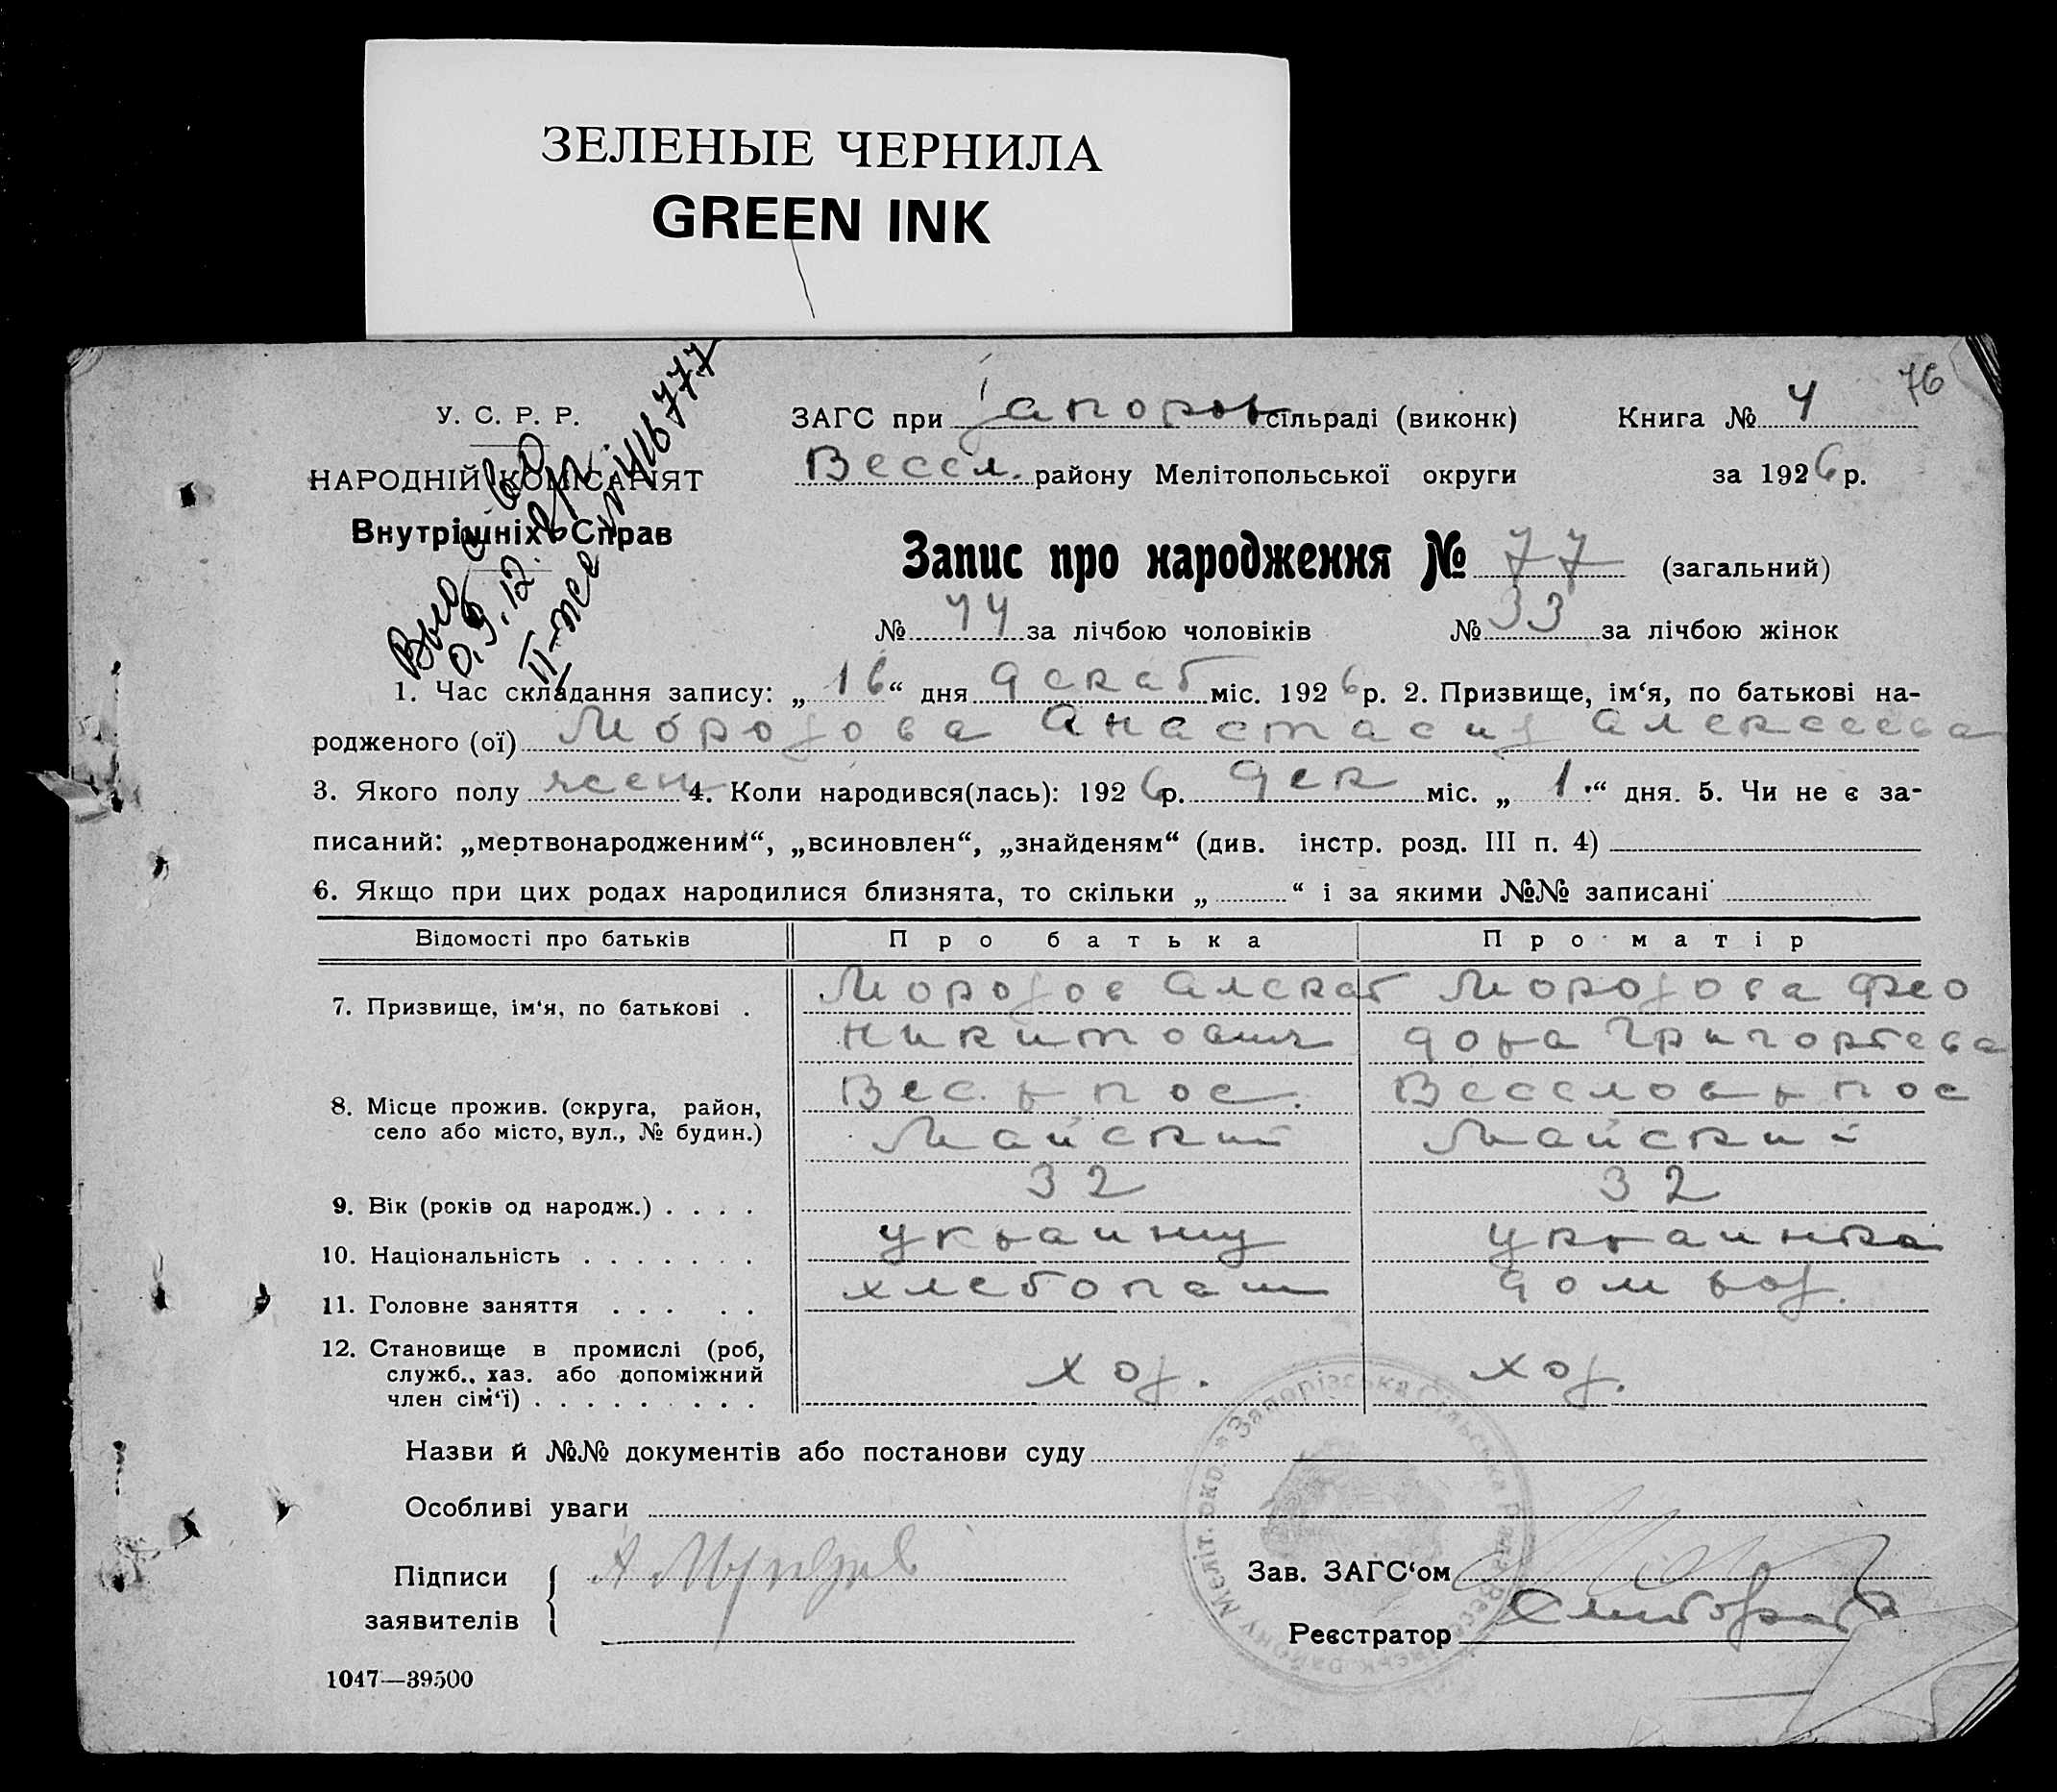 ЗЕЛЕНЫЕ ЧЕРНИЛА
GREEN INK
76
У. С. Р. Р.
НАРОДНІЙ КОМІСАРІЯТ
Внутрішніх Справ
II-ЖС № 416777
ЗАГС при Запоров сільраді (виконк)
Весел. району Мелітопольської округи
Книга № 4
за 1926 р.
Запис про народження № 77 (загальний)
№ 44 за лічбою чоловіків № 33 за лічбою жінок
1. Час складання запису: „ 16 “ дня декаб міс. 1926 р. 2. Призвище, ім‘я, по батькові на-
родженого (ої) Морозова Анастасия Алексеева
3. Якого полу жен 4. Коли народився(лась): 1926 р. дек міс. „ 1 “ дня. 5. Чи не є за-
писаний: „мертвонародженим“, „всиновлен“, „знайденям“ (див. інстр. розд. III п. 4)
6. Якщо при цих родах народилися близнята, то скільки „ “ і за якими №№ записані
Відомості про батьків Про батька Про матір
7. Призвище, ім‘я, по батькові . Морозов Морозова Фео
Никитович дора Григорьева
8. Місце прожив. (округа, район, Вес. р пос. Веселов р пос
село або місто, вул., № будин.) Майский Майский
9. Вік (років од народж.) . . . . 32 32
10. Національність . . . . . . . украинц украинка
11. Головне заняття . . . . . хлебопаш домхоз.
12. Становище в промислі (роб,
служб., хаз. або допоміжний хоз. хоз.
член сім‘ї) . . . . . . . . .
Назви й №№ документів або постанови суду
Особливі уваги
Підписи А Морозов
заявителів
Зав. ЗАГС‘ом
Реєстратор
Запорізська Сільська Рада Веселівськ. району Меліт. окр.
1047—39500